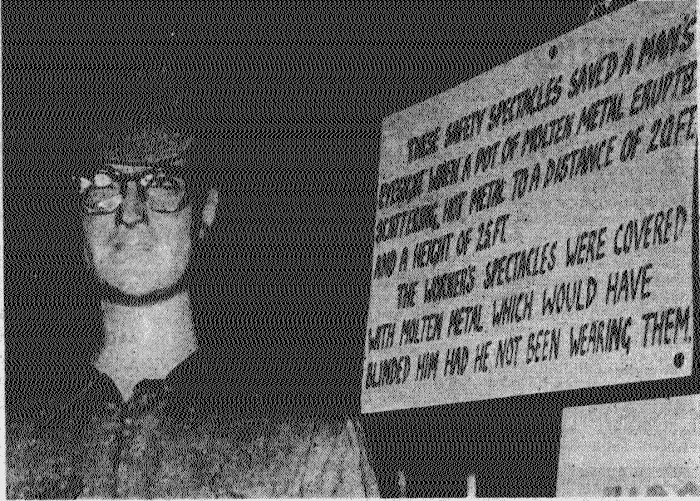 THESE SAFETY SPECTACLES SAVED A MAN'S
EYESIGHT WHEN A POT OF MOLTEN METAL ERUPTED
SCATTERING HOT METAL TO A DISTANCE OF 20 FT.
AND A HEIGHT OF 25 FT
THE WORKER'S SPECTACLES WERE COVERED
WITH MOLTEN METAL WHICH WOULD HAVE
BLINDED HIM HAD HE NOT BEEN WEARING THEM.